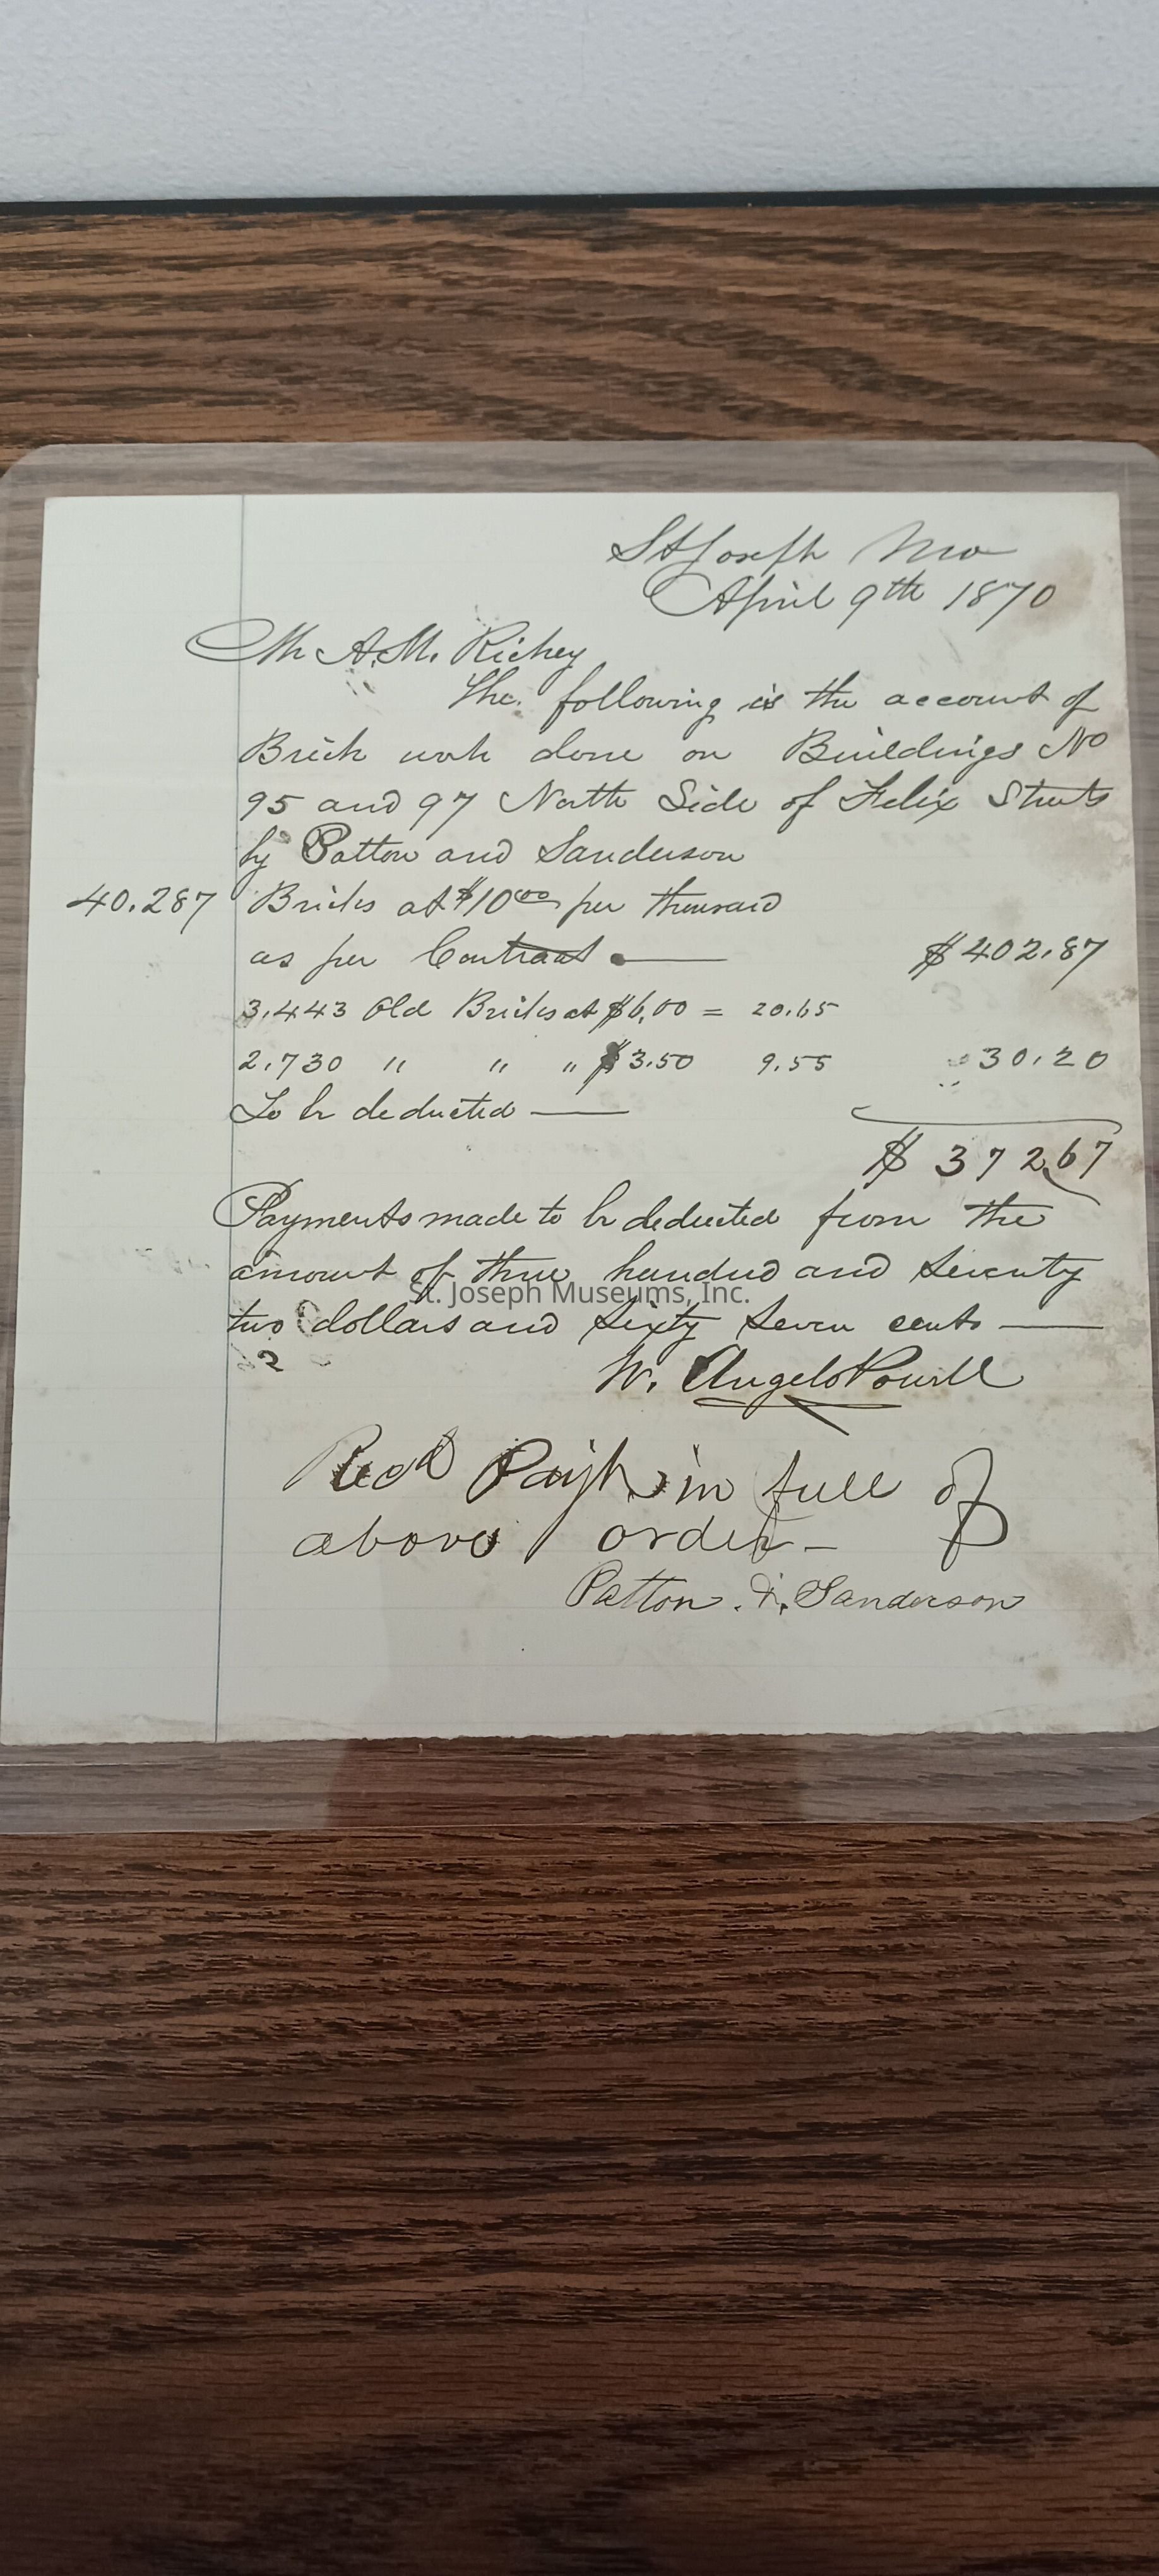 St Joseph Mo
April 9th 1870
Mr A.M. Richey
The following is the account of
Brick work done on Buildings No
95 and 97 North Side of Felix Streets
by Patton and Sanderson
40.287 Bricks at $10 00 per thousand
as per Contract $402.87
3,443 Old Bricks at $6,00 = 20.65
2,730 " " " $3.50 9.55 30.20
To be deducted
$ 372 67
Payments made to be deducted from the
amount of three hundred and Seventy
St. Joseph Museums, Inc.
two dollars and Sixty Seven cents
W. Angelo Powell
Recd in full of
above order
Patton & Sanderson